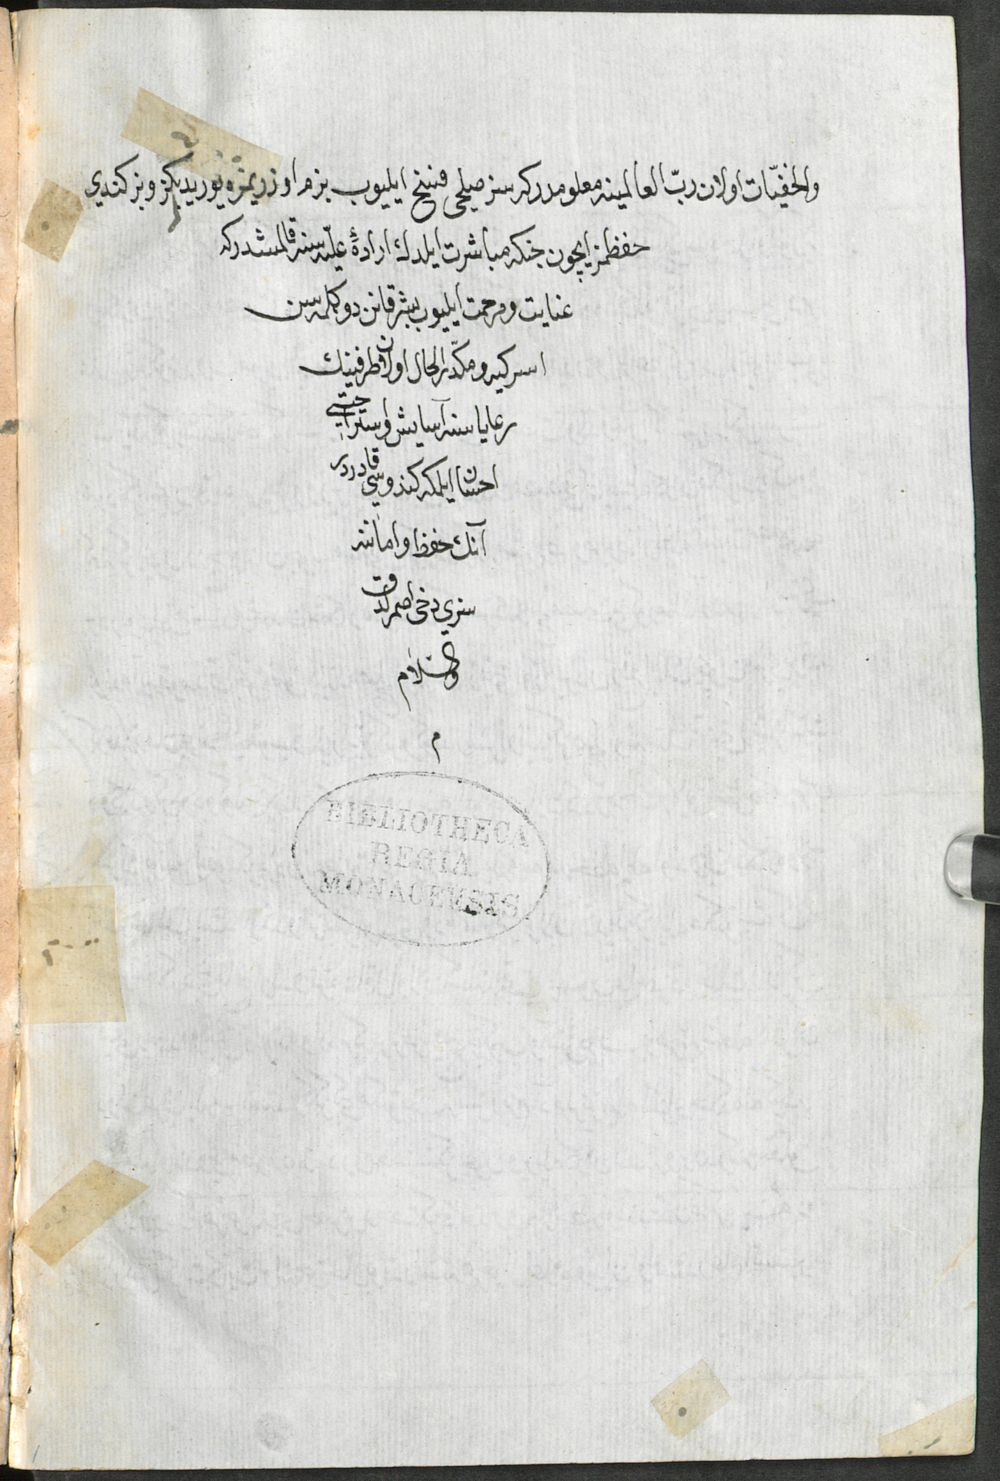 والخفيّات اولان ربّ العالمينه معلومدركه سز صلحى فسخ ايليوب بزم اوزريمزه يوريديكز وبز كندي
حفظمز ايچون جنكه مباشرت ايلدك ارادهٔ عليّه سنه قالمشدركه
عنايت ومرحمت ايليوب بشر قانن دوكلمه سن
اسركيه ومكدّر الحال اولان طرفينك
رعاياسنه آسايش واستراحتى
احسان ايلمكه كندوسي قادردر
آنك حفظ واماننه
سزي دخى اصمرلدق
والسّلام
م
BIBLIOTHECA
REGIA
MONACENSIS